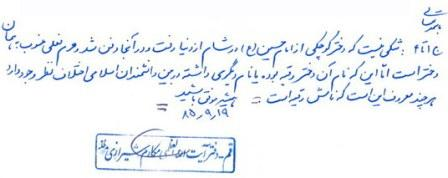 بسمه تعالی
ج۱ تا ۴ : شکی نیست که دختر کوچکی از امام حسین (ع) در شام از دنیا رفت و در آنجا دفن شد و حرم فعلی منسوب به همان
دختر است اما این که نام آن دختر رقیه بوده یا نام دیگری داشته در بین دانشمندان اسلامی اختلاف نظر وجود دارد
هر چند معروف این است که نامش رقیه است = همیشه موفق باشید =
۸۵,۹,۱۹
قم - دفتر آیت الله العظمی مکارم شیرازی مدظله